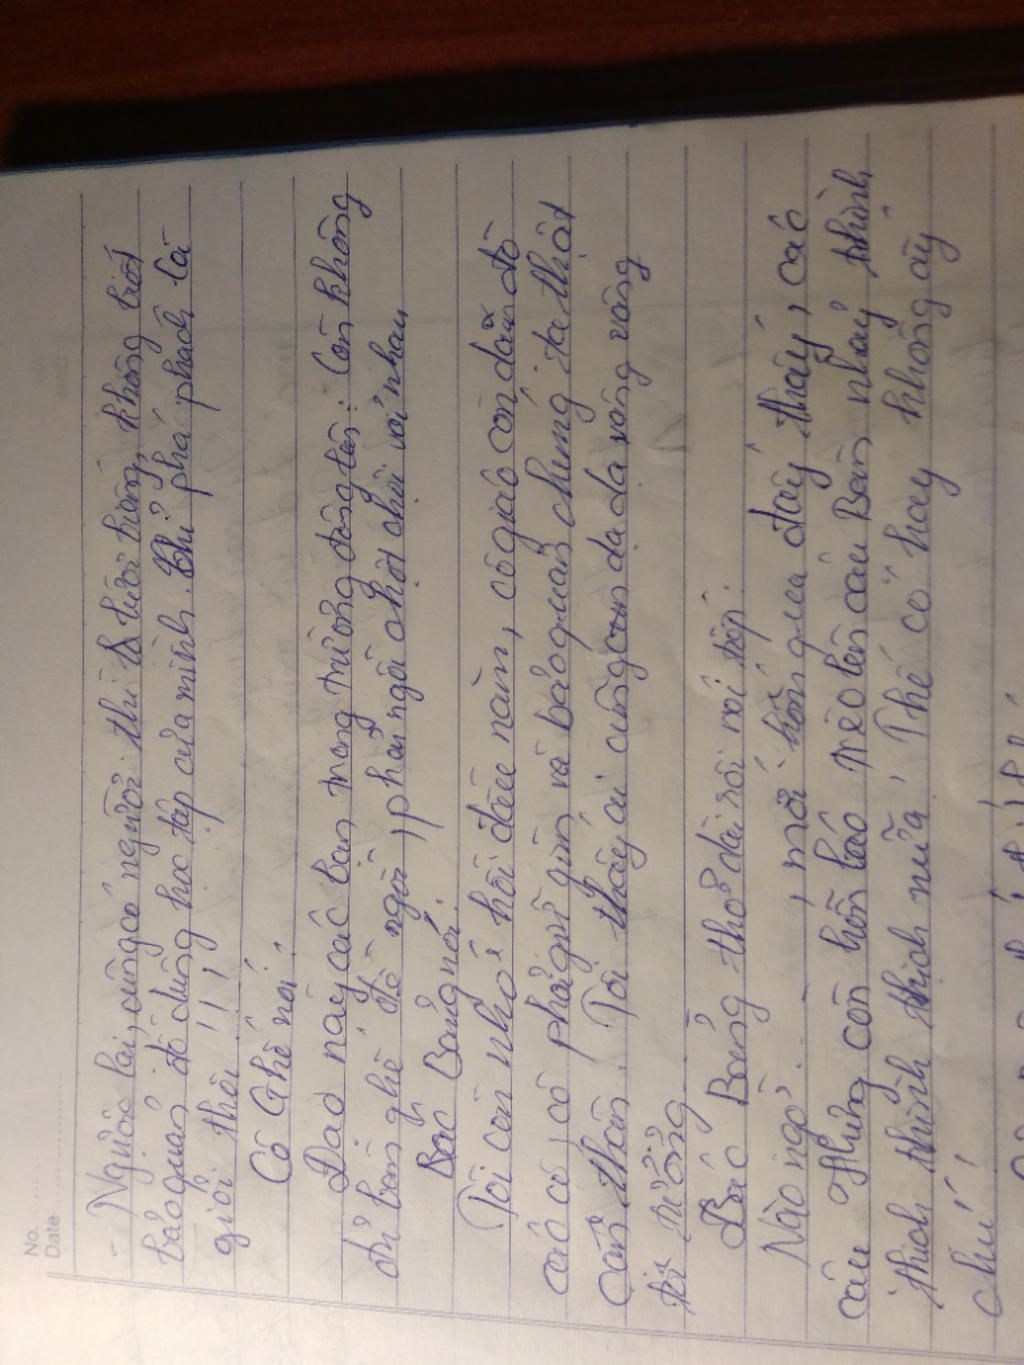 No.
Date
- Ngược lại, cũng có người thì lười biếng, không biết
bảo quản đồ dùng học tập của mình. Chỉ phá phách là
giỏi thôi !!!
Cô Ghế nói:
Dạo này các bạn trong trường đông lắm: Còn không
đủ bàn ghế để ngồi, phải ngồi chật chội với nhau
Bác Bảng nói:
Tôi còn nhớ hồi đầu năm, cô giáo còn dặn dò
các cô, cô phải giữ gìn và bảo quản chúng ta thật
cẩn thận. Tôi thấy ai cũng dạ dạ vâng vâng
tôi tưởng
Bác Bảng thở dài rồi nói tiếp:
Nào ngờ.. , mới hôm qua đây thấy, các
cậu Hùng còn hỗn láo trèo lên cậu Bàn nhảy thình
thịch thình thịch nữa! Thế có hay không ấy
chứ!